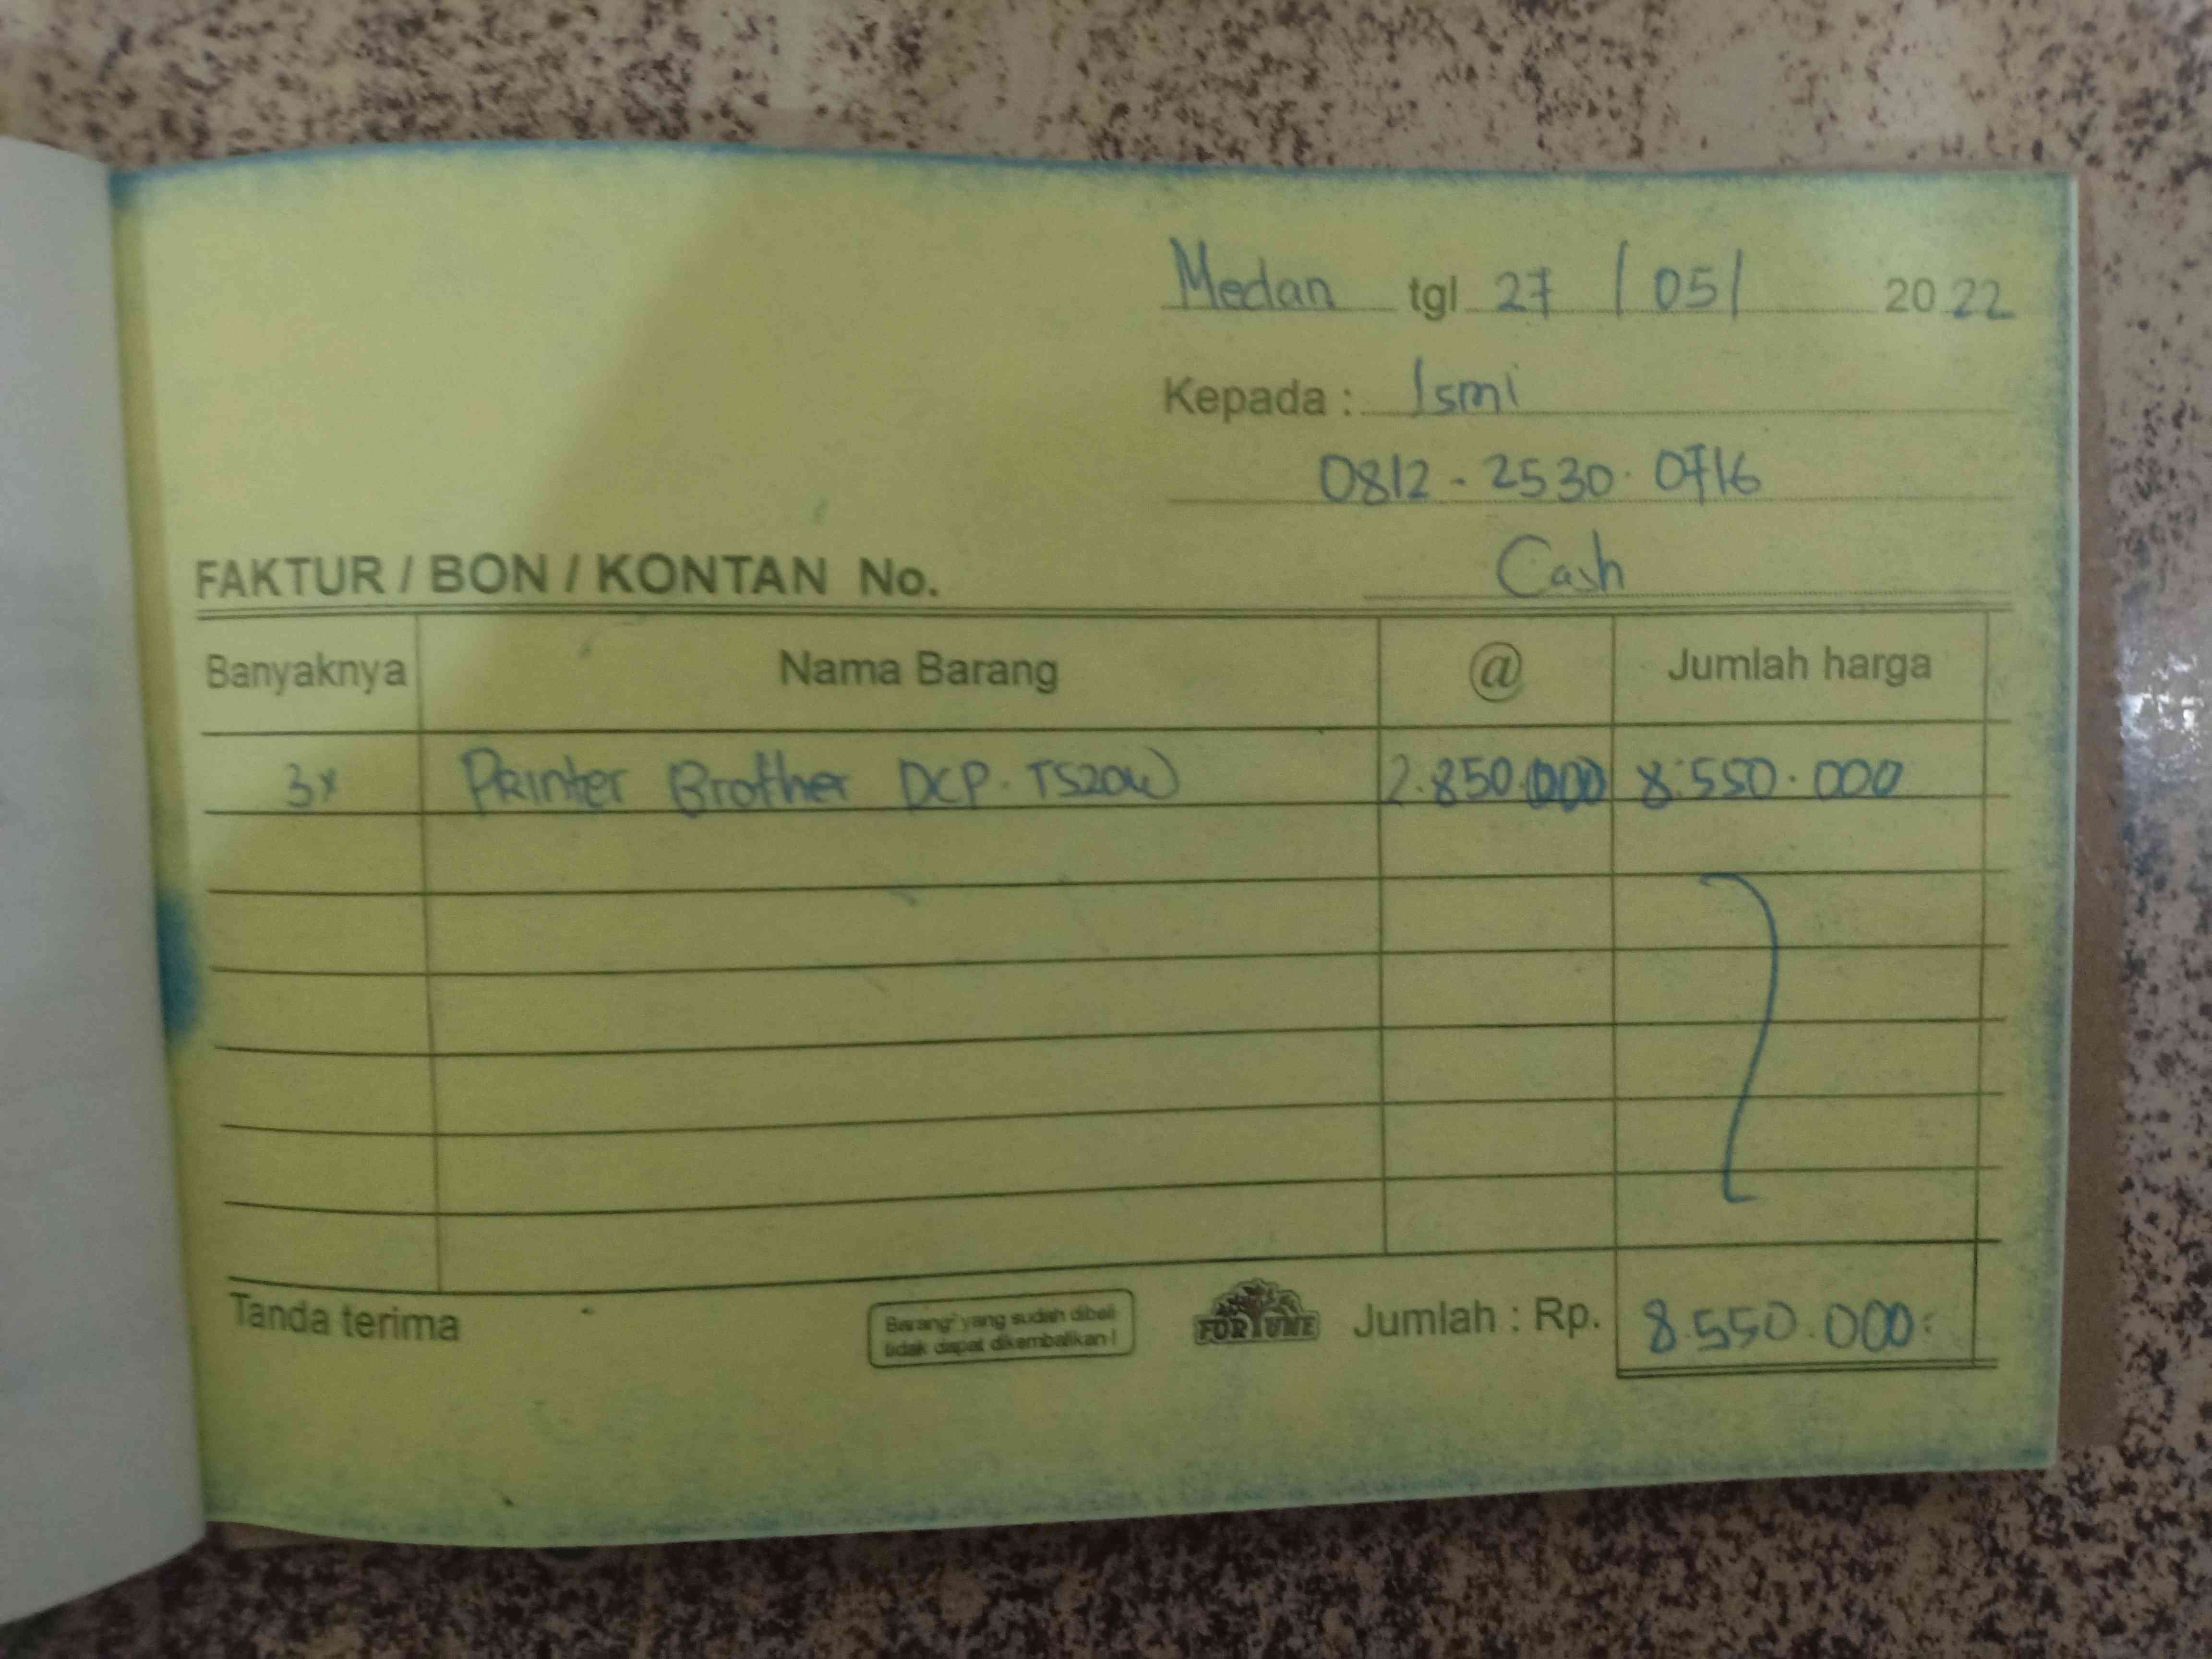 Medan tgl 27 / 05 / 2022
Kepada : Ismi
0812 - 2530 . 0716
Cash
FAKTUR / BON / KONTAN No.
Banyaknya Nama Barang @ Jumlah harga
3x Printer Brother DCP. T520W 2.850.000 8.550.000
Tanda terima
Barang² yang sudah dibeli
tidak dapat dikembalikan !
FORTUNE
Jumlah : Rp. 8.550.000